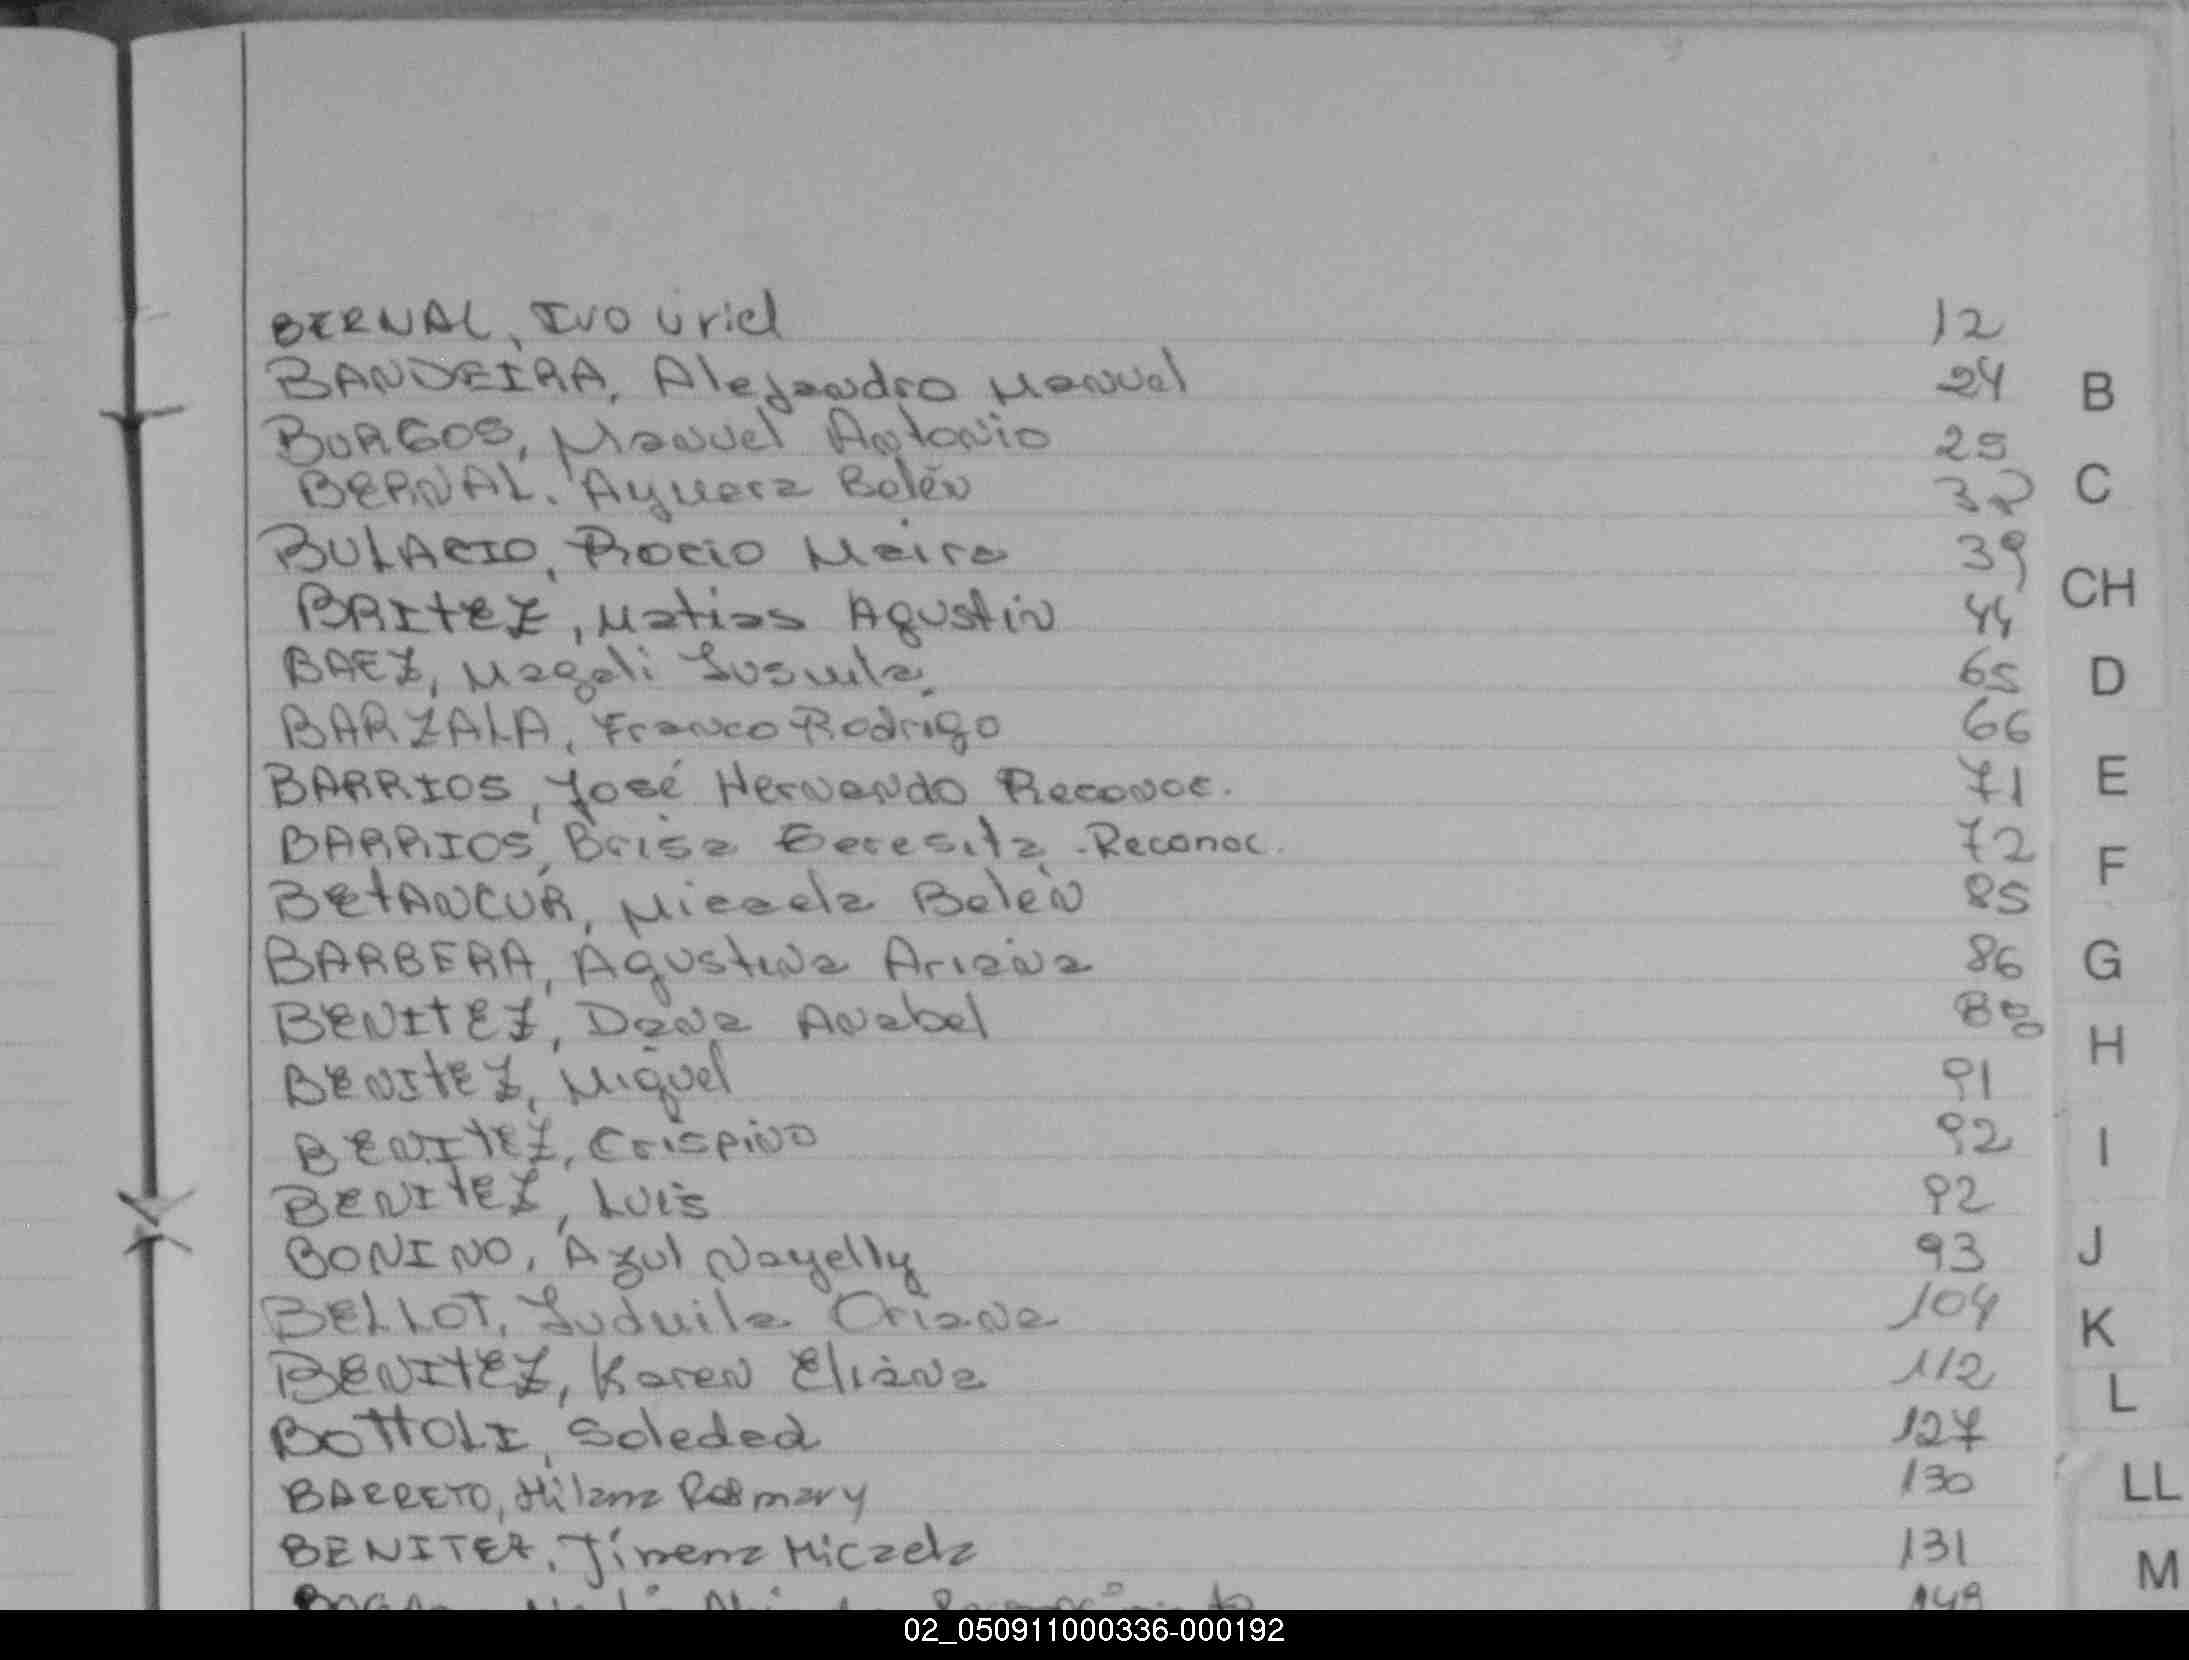 BERNAL, Ivo Uriel 12
BANDEIRA, Alejandro Manuel 24
BURGOS, Manuel Antonio 25
BERNAL. Belén 32
BULACIO, Rocio Maira 39
BRITEZ, Matias Agustin 44
BAEZ, Magali 65
BARZALA, Franco Rodrigo 66
BARRIOS, José Hernando Reconoc. 71
BARRIOS, Brisa Teresita. Reconoc. 72
BETANCUR, Micaela Belén 85
BARBERA, Agustina Ariana 86
BENITEZ, Dana Anabel 88
BENITEZ, Miguel 91
BENITEZ, Crispino 92
BENITEZ, Luis 92
BONINO, Azul Nayelly 93
BELLOT, Ludmila Oriana 104
BENITEZ, Karen Eliana 112
BOTTOLI, Soledad 127
BARRETO, Milena Rosmary 130
BENITEZ, Jimena Micaela 131
149
B
C
CH
D
E
F
G
H
I
J
K
L
LL
M
02_050911000336-000192